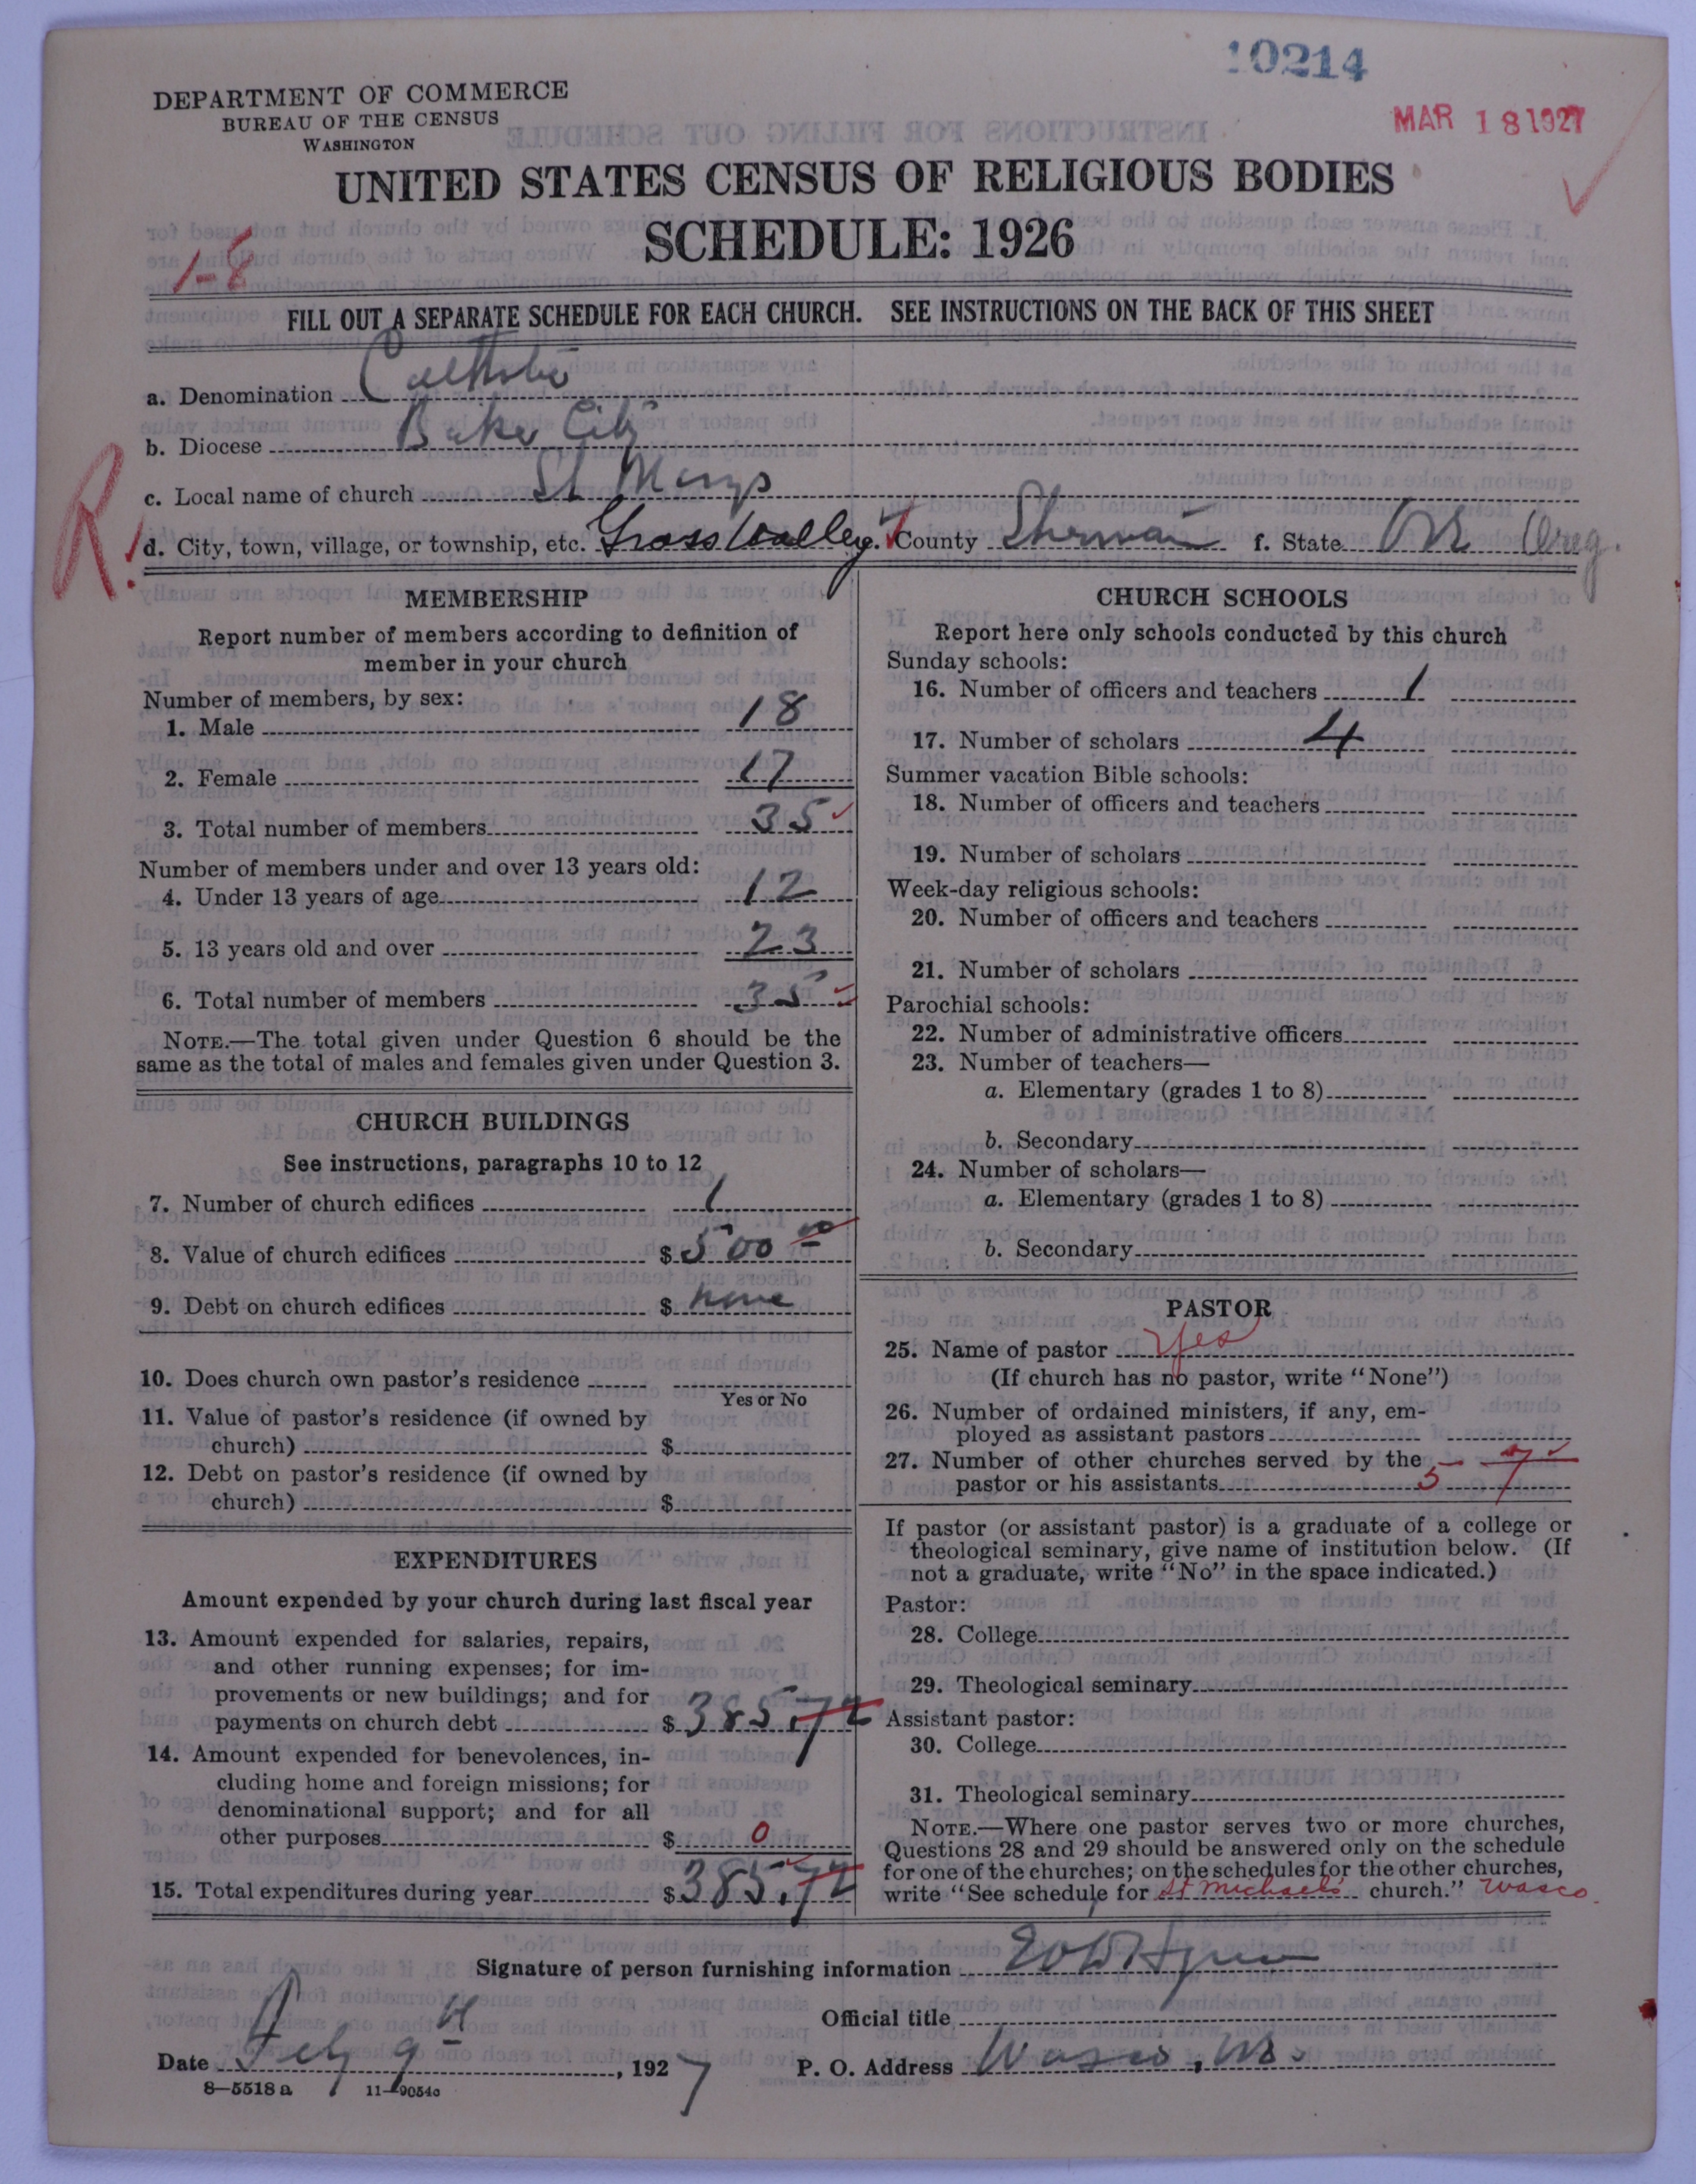 10214
MAR 18 1927
DEPARTMENT OF COMMERCE
BUREAU OF THE CENSUS
WASHINGTON
UNITED STATES CENSUS OF RELIGIOUS BODIES
SCHEDULE: 1926
1-8
FILL OUT A SEPARATE SCHEDULE FOR EACH CHURCH. SEE INSTRUCTIONS ON THE BACK OF THIS SHEET
a. Denomination Catholic
b. Diocese Baker City
c. Local name of church St Marys
R. d. City, town, village, or township, etc. Grass Valley. County Sherman f. State OR Oreg.
MEMBERSHIP
Report number of members according to definition of
member in your church
Number of members, by sex:
1. Male 18
2. Female 17
3. Total number of members 35
Number of members under and over 13 years old:
4. Under 13 years of age 12
5. 13 years old and over 23
6. Total number of members 35
NOTE.—The total given under Question 6 should be the
same as the total of males and females given under Question 3.
CHURCH BUILDINGS
See instructions, paragraphs 10 to 12
7. Number of church edifices 1
8. Value of church edifices $ 500 00
9. Debt on church edifices $ none
10. Does church own pastor's residence
Yes or No
11. Value of pastor's residence (if owned by
church) $
12. Debt on pastor's residence (if owned by
church) $
EXPENDITURES
Amount expended by your church during last fiscal year
13. Amount expended for salaries, repairs,
and other running expenses; for im-
provements or new buildings; and for
payments on church debt $ 385.72
14. Amount expended for benevolences, in-
cluding home and foreign missions; for
denominational support; and for all
other purposes $ 0
15. Total expenditures during year $ 385.72
CHURCH SCHOOLS
Report here only schools conducted by this church
Sunday schools:
16. Number of officers and teachers 1
17. Number of scholars 4
Summer vacation Bible schools:
18. Number of officers and teachers
19. Number of scholars
Week-day religious schools:
20. Number of officers and teachers
21. Number of scholars
Parochial schools:
22. Number of administrative officers
23. Number of teachers—
a. Elementary (grades 1 to 8)
b. Secondary
24. Number of scholars—
a. Elementary (grades 1 to 8)
b. Secondary
PASTOR
25. Name of pastor Yes
(If church has no pastor, write "None")
26. Number of ordained ministers, if any, em-
ployed as assistant pastors
27. Number of other churches served by the
pastor or his assistants 5 7
If pastor (or assistant pastor) is a graduate of a college or
theological seminary, give name of institution below. (If
not a graduate, write "No" in the space indicated.)
Pastor:
28. College
29. Theological seminary
Assistant pastor:
30. College
31. Theological seminary
NOTE.—Where one pastor serves two or more churches,
Questions 28 and 29 should be answered only on the schedule
for one of the churches; on the schedules for the other churches,
write "See schedule for St Michael's church." Wasco.
Signature of person furnishing information
Official title
Date Feb 9th, 1927 P. O. Address Wasco, Or.
8—5518 a 11—9054c